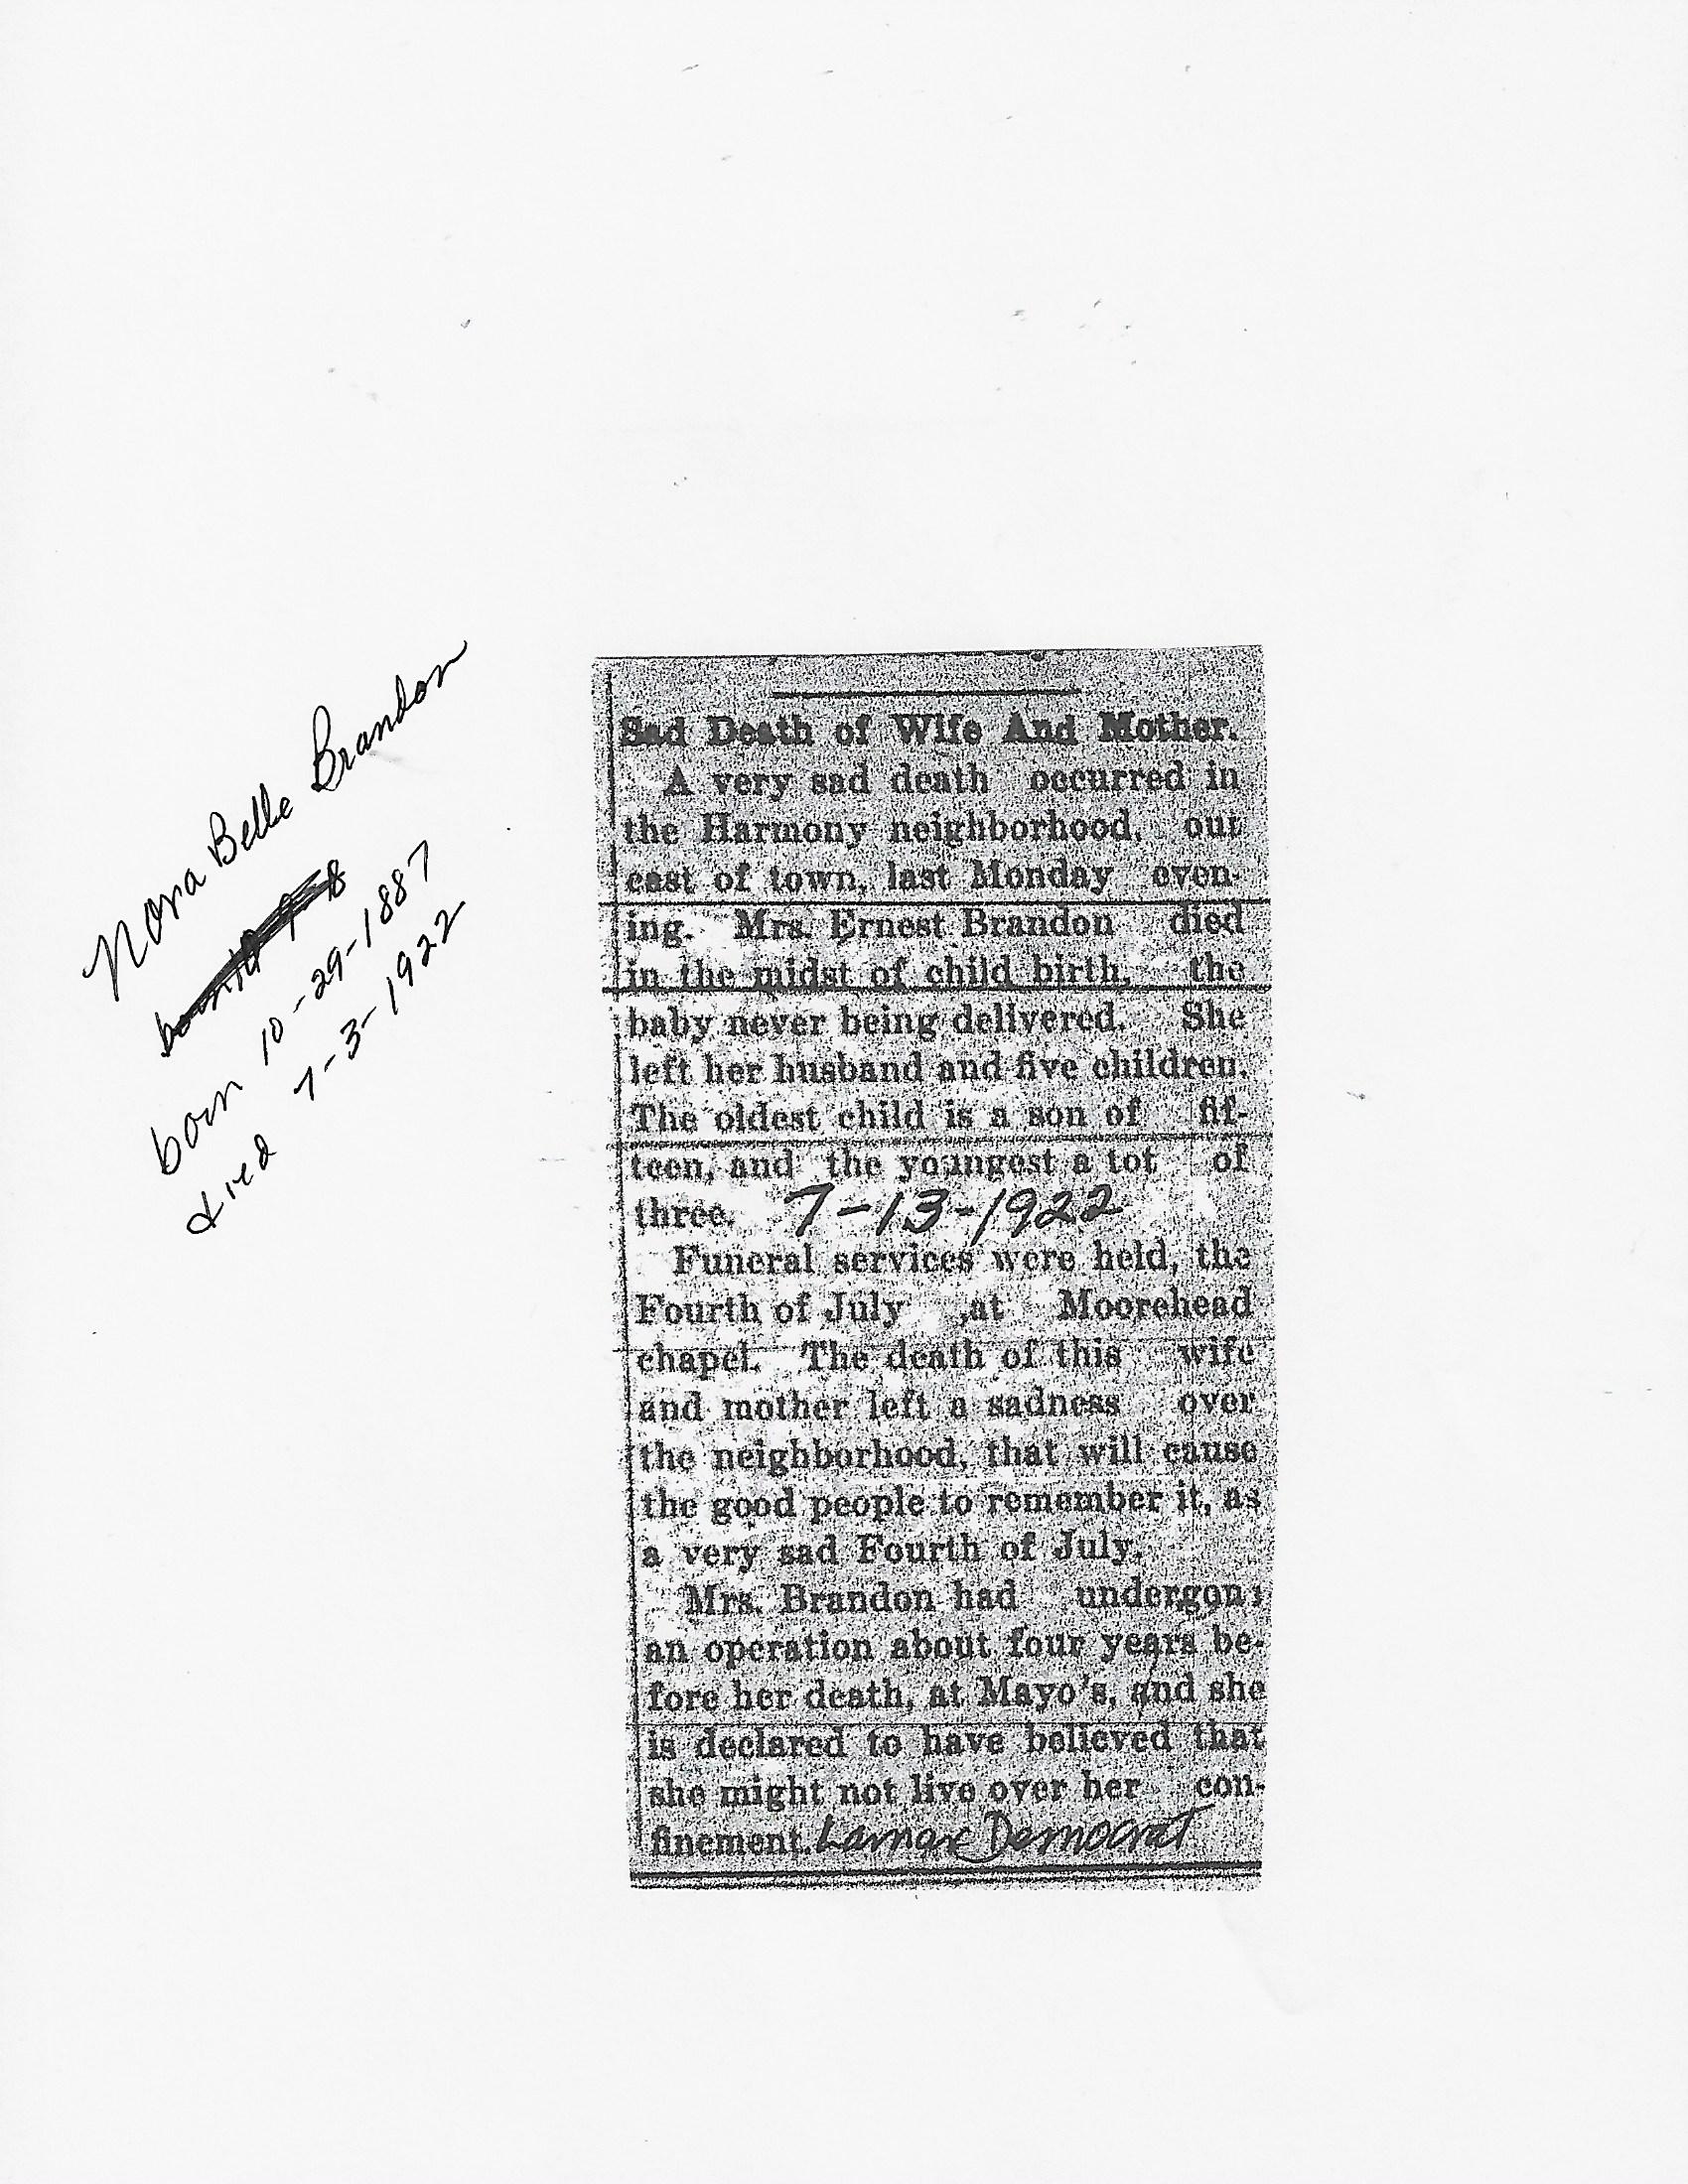 Nona Belle Brandon
born 10-29-1887
died 7-3-1922
Sad Death of Wife And Mother.
A very sad death occurred in
the Harmony neighborhood, out
east of town, last Monday even-
ing. Mrs. Ernest Brandon died
in the midst of child birth, the
baby never being delivered. She
left her husband and five children.
The oldest child is a son of fif-
teen, and the youngest a tot of
three. 7-13-1922
Funeral services were held, the
Fourth of July ,at Moorehead
chapel. The death of this wife
and mother left a sadness over
the neighborhood, that will cause
the good people to remember it, as
a very sad Fourth of July.
Mrs. Brandon had undergone
an operation about four years be-
fore her death, at Mayo's, and she
is declared to have believed that
she might not live over her con-
finement. Lamar Democrat